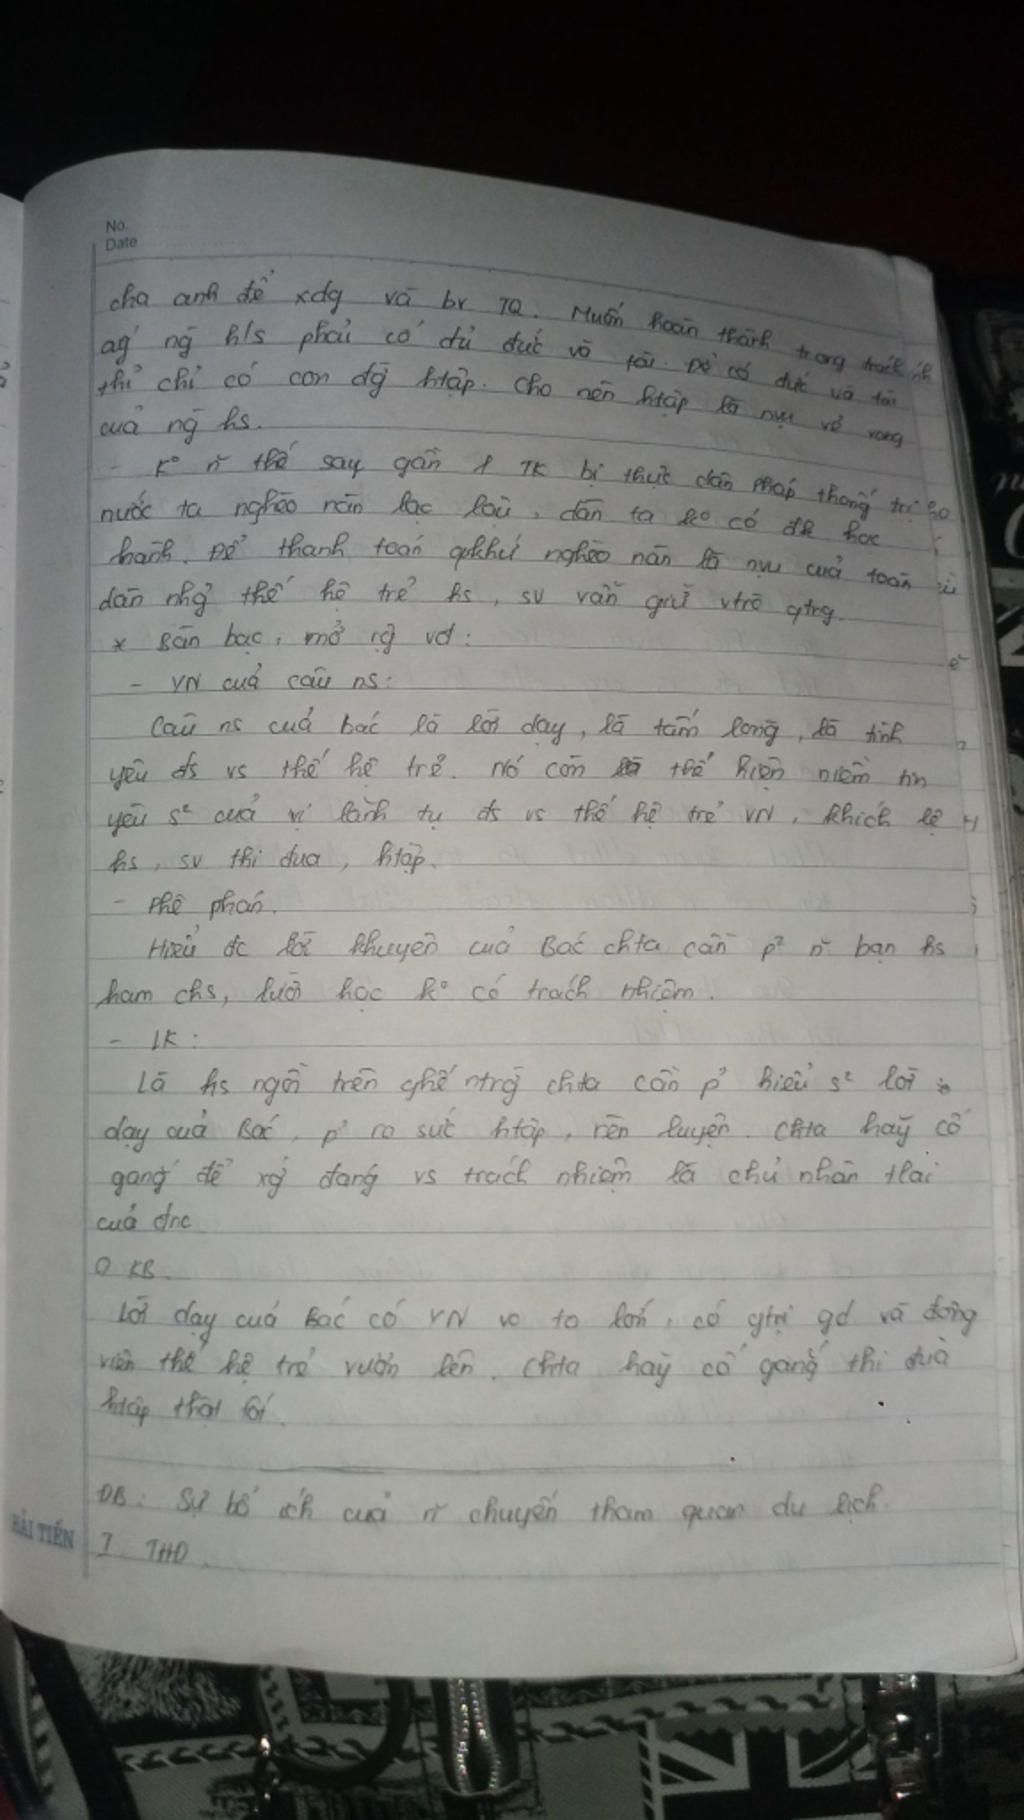 No.
Date
cha anh để xdg và bv TQ. Muốn hoàn thành trọng trách
ng h/s phải có đủ đức và tài. Để có đức và tài
thì chỉ có con đg htập. Cho nên htập là nvụ vẻ vang
của ng hs.
- K° n~ thế say gần 1 TK bị thực dân Pháp thống trị
nước ta nghèo nàn lạc hậu, dân ta k° có đk học
hành. Để thanh toán qkhứ nghèo nàn là nvụ của toàn
dân nhg thế hệ trẻ hs, sv vẫn giữ vtrò qtrg.
* Bàn bạc, mở rộg vđ:
- YN của câu ns:
Câu ns của Bác là lời dạy, là tấm lòng, là tình
yêu đs vs thế hệ trẻ. Nó còn thể hiện niềm tin
yêu s² của vị lãnh tụ đs vs thế hệ trẻ VN, khích lệ
hs, sv thi đua, htập.
- Phê phán.
Hiểu đc lời khuyên của Bác chta cần p² n~ bạn hs
ham chs, lười học k° có trách nhiệm.
- LK:
Là hs ngồi trên ghế ntrg chta cần p' hiểu s² lời
dạy của Bác, p' ra sức htập, rèn luyện. Chta hãy cố
gắng để xg đáng vs trách nhiệm là chủ nhân tlai
của đnc
KB.
Lời dạy của Bác có YN vo to lớn, có gtrị gd và động
viên thế hệ trẻ vươn lên. Chta hãy cố gắng thi đua
htập thật tốt.
ĐB: Sự bổ ích của n~ chuyến tham quan du lịch.
I THĐ.
HẢI TIẾN